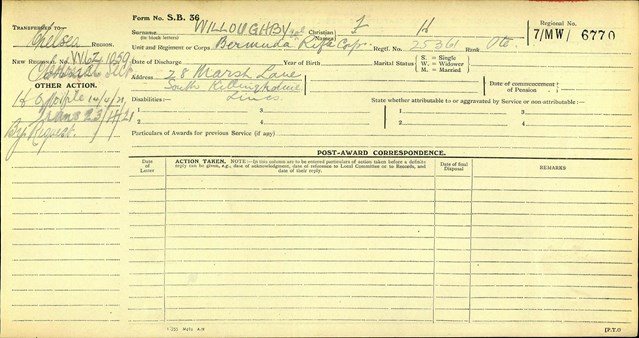 TRANSFERRED TO:—
Chelsea
REGION.
NEW REGIONAL No.
OTHER ACTION.
By Request
Form No. S.B. 36
Surname
(in block letters)
WILLOUGHBY
Christian Names
J H
Unit and Regiment or Corps
Bermuda Rifle Corps
Regtl. No. 25361
Rank Pte.
Regional No.
7/MW/ 6770
Date of Discharge
Year of Birth
Marital Status
S. = Single
W. = Widower
M. = Married
Address 28 Marsh Lane
South Killingholme
Lincs
Date of commencement of Pension
Disabilities:—
1
2
3
4
State whether attributable to or aggravated by Service or non-attributable:—
1
2
3
4
Particulars of Awards for previous Service (if any)
POST-AWARD CORRESPONDENCE.
Date of Letter
ACTION TAKEN. NOTE:—(In this column are to be entered particulars of action taken before a definite reply can be given, e.g., date of acknowledgment, date of reference to Local Committee or to Records, and date of their reply).
Date of final Disposal
REMARKS
[P.T.O